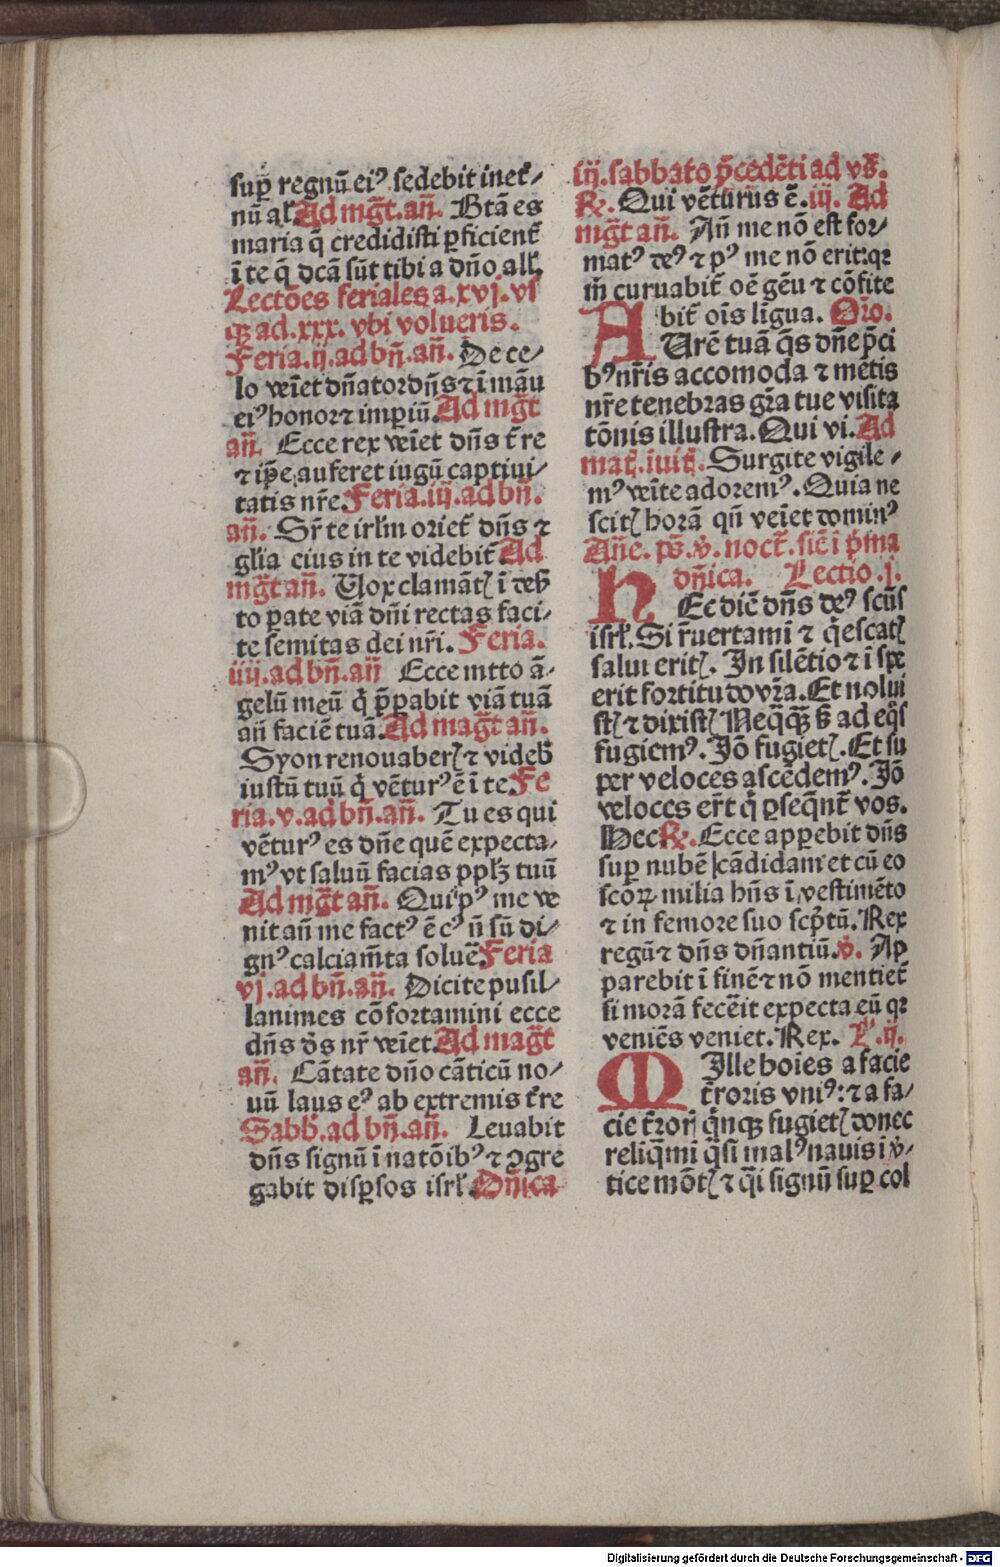 suꝑ regnū eiꝰ sedebit inet̄⸗
nū aƚ Ad mg̃t. añ. Btā es
maria q̄ credidisti ꝑficient̄
ī te q̄ dcā sūt tibi a dño alƚ.
Lectōes feriales a. xvj. vs
qꝫ ad. xxx. vbi volueris.
Feria. ij. ad bñ. añ. De ce⸗
lo veīet dñator dñs ⁊ ī māu
eiꝰ honor ⁊ imꝑiū. Ad mg̃t
añ. Ecce rex veīet dñs t̄re
⁊ ip̄e auferet iugū captiui⸗
tatis nr̄e Feria. iij. ad bñ.
añ. Sr̄ te irƚm oriet̄ dñs ⁊
glīa eius in te videbit̄ Ad
mg̃t añ. Uox clamāt̄ ī des̄
to pate viā dñi rectas faci⸗
te semitas dei nr̄i. Feria.
iiij. ad bñ. añ Ecce mtto ā⸗
gelū meū q̇ p̄ꝑabit viā tuā
añ faciē tuā. Ad mag̃t añ.
Syon renouaber̄ ⁊ videb̄
iustū tuū q̇ vētur̾ꝰ ē ī te Fe
ria. v. ad bñ. añ. Tu es qui
vēturꝰ es dñe quē expecta⸗
mꝰ vt saluū facias pplꝫ tuū
Ad mg̃t añ. Qui pꝰ me ve
nit añ me factꝰ ē cꝰ ñ sū di⸗
gnꝰ calciam̄ta soluē. Feria
vj. ad bñ. añ. Dicite pusil⸗
lanimes cōfortamini ecce
dñs d̄s nr̄ veīet. Ad mag̃t
añ. Cātate dño cāticū no⸗
uū laus eꝰ ab extremis t̄re
Sabb̄. ad bñ. añ. Leuabit
dñs signū ī natōibꝰ ⁊ ꝯgre
gabit disꝑsos isrƚ. Dñica
iij. sabbato p̄cedēti ad vs̄.
℟. Qui vēturus ē. iij. Ad
mg̃t añ. Añ me nō est for⸗
matꝰ deꝰ ⁊ pꝰ me nō erit: qꝛ
m̄ curuabit̄ oē gēu ⁊ cōfite
bit̄ oīs līgua. Oīo.
AUrē tuā q̄s dñe p̄ci
bꝰ nr̄is accomoda ⁊ mētis
nr̄e tenebras gr̄a tue visita
tōnis illustra. Qui vi. Ad
mat̄. īuit̄. Surgite vigile⸗
mꝰ veīte adoremꝰ. Quia ne
scit̄ horā qñ veīet dominꝰ
Añe. ps̄. v̇. noct̄. sic̄ ī p̄ma
dñica. Lectio. j.
HEc dic̄ dñs deꝰ scūs
isrƚ. Si r̄uertami ⁊ q̇escat̄
salui erit̄. In silētio ⁊ ī spe
erit fortitudo vr̄a. Et nolui
st̄ ⁊ dixist̄ Neq̄q̄ꝫ s̄ ad eq̇s
fugiemꝰ. Jō fugiet̄. Et su
per veloces ascēdemꝰ. Jō
veloces er̄t q̇ ꝑseq̄nt̄ vos.
Hec ℟. Ecce apꝑebit dñs
suꝑ nubē cādidam et cū eo
scōꝝ milia hñs ī vestimēto
⁊ in femore suo scp̄tū. Rex
regū ⁊ dñs dñantiū. v̇. Ap
parebit ī finē ⁊ nō mentiet̄
si morā fecēit expecta eū qꝛ
veniēs veniet. Rex. L̄. ij.
MIlle hoīes a facie
t̄roris vniꝰ: ⁊ a fa⸗
cie t̄ror̄ q̇nqꝫ fugiet̄ donec
reliq̄mi q̇si malꝰ nauis ī v̇⸗
tice mōt̄ ⁊ q̇i signū suꝑ col
Digitalisierung gefördert durch die Deutsche Forschungsgemeinschaft - DFG